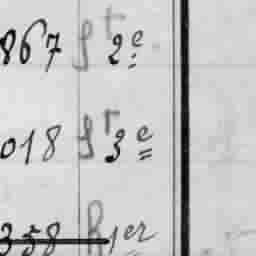 867 St 2e
018 St 3e
358 R 1er